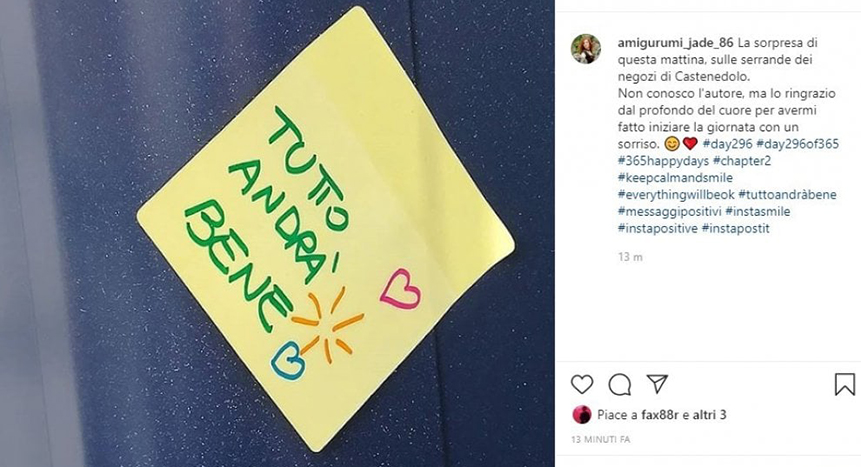 TUTTO
ANDRÀ
BENE
amigurumi_jade_86 La sorpresa di
questa mattina, sulle serrande dei
negozi di Castenedolo.
Non conosco l'autore, ma lo ringrazio
dal profondo del cuore per avermi
fatto iniziare la giornata con un
sorriso. 😊❤️ #day296 #day296of365
#365happydays #chapter2
#keepcalmandsmile
#everythingwillbeok #tuttoandràbene
#messaggipositivi #instasmile
#instapositive #instapostit
13 m
Piace a fax88r e altri 3
13 MINUTI FA